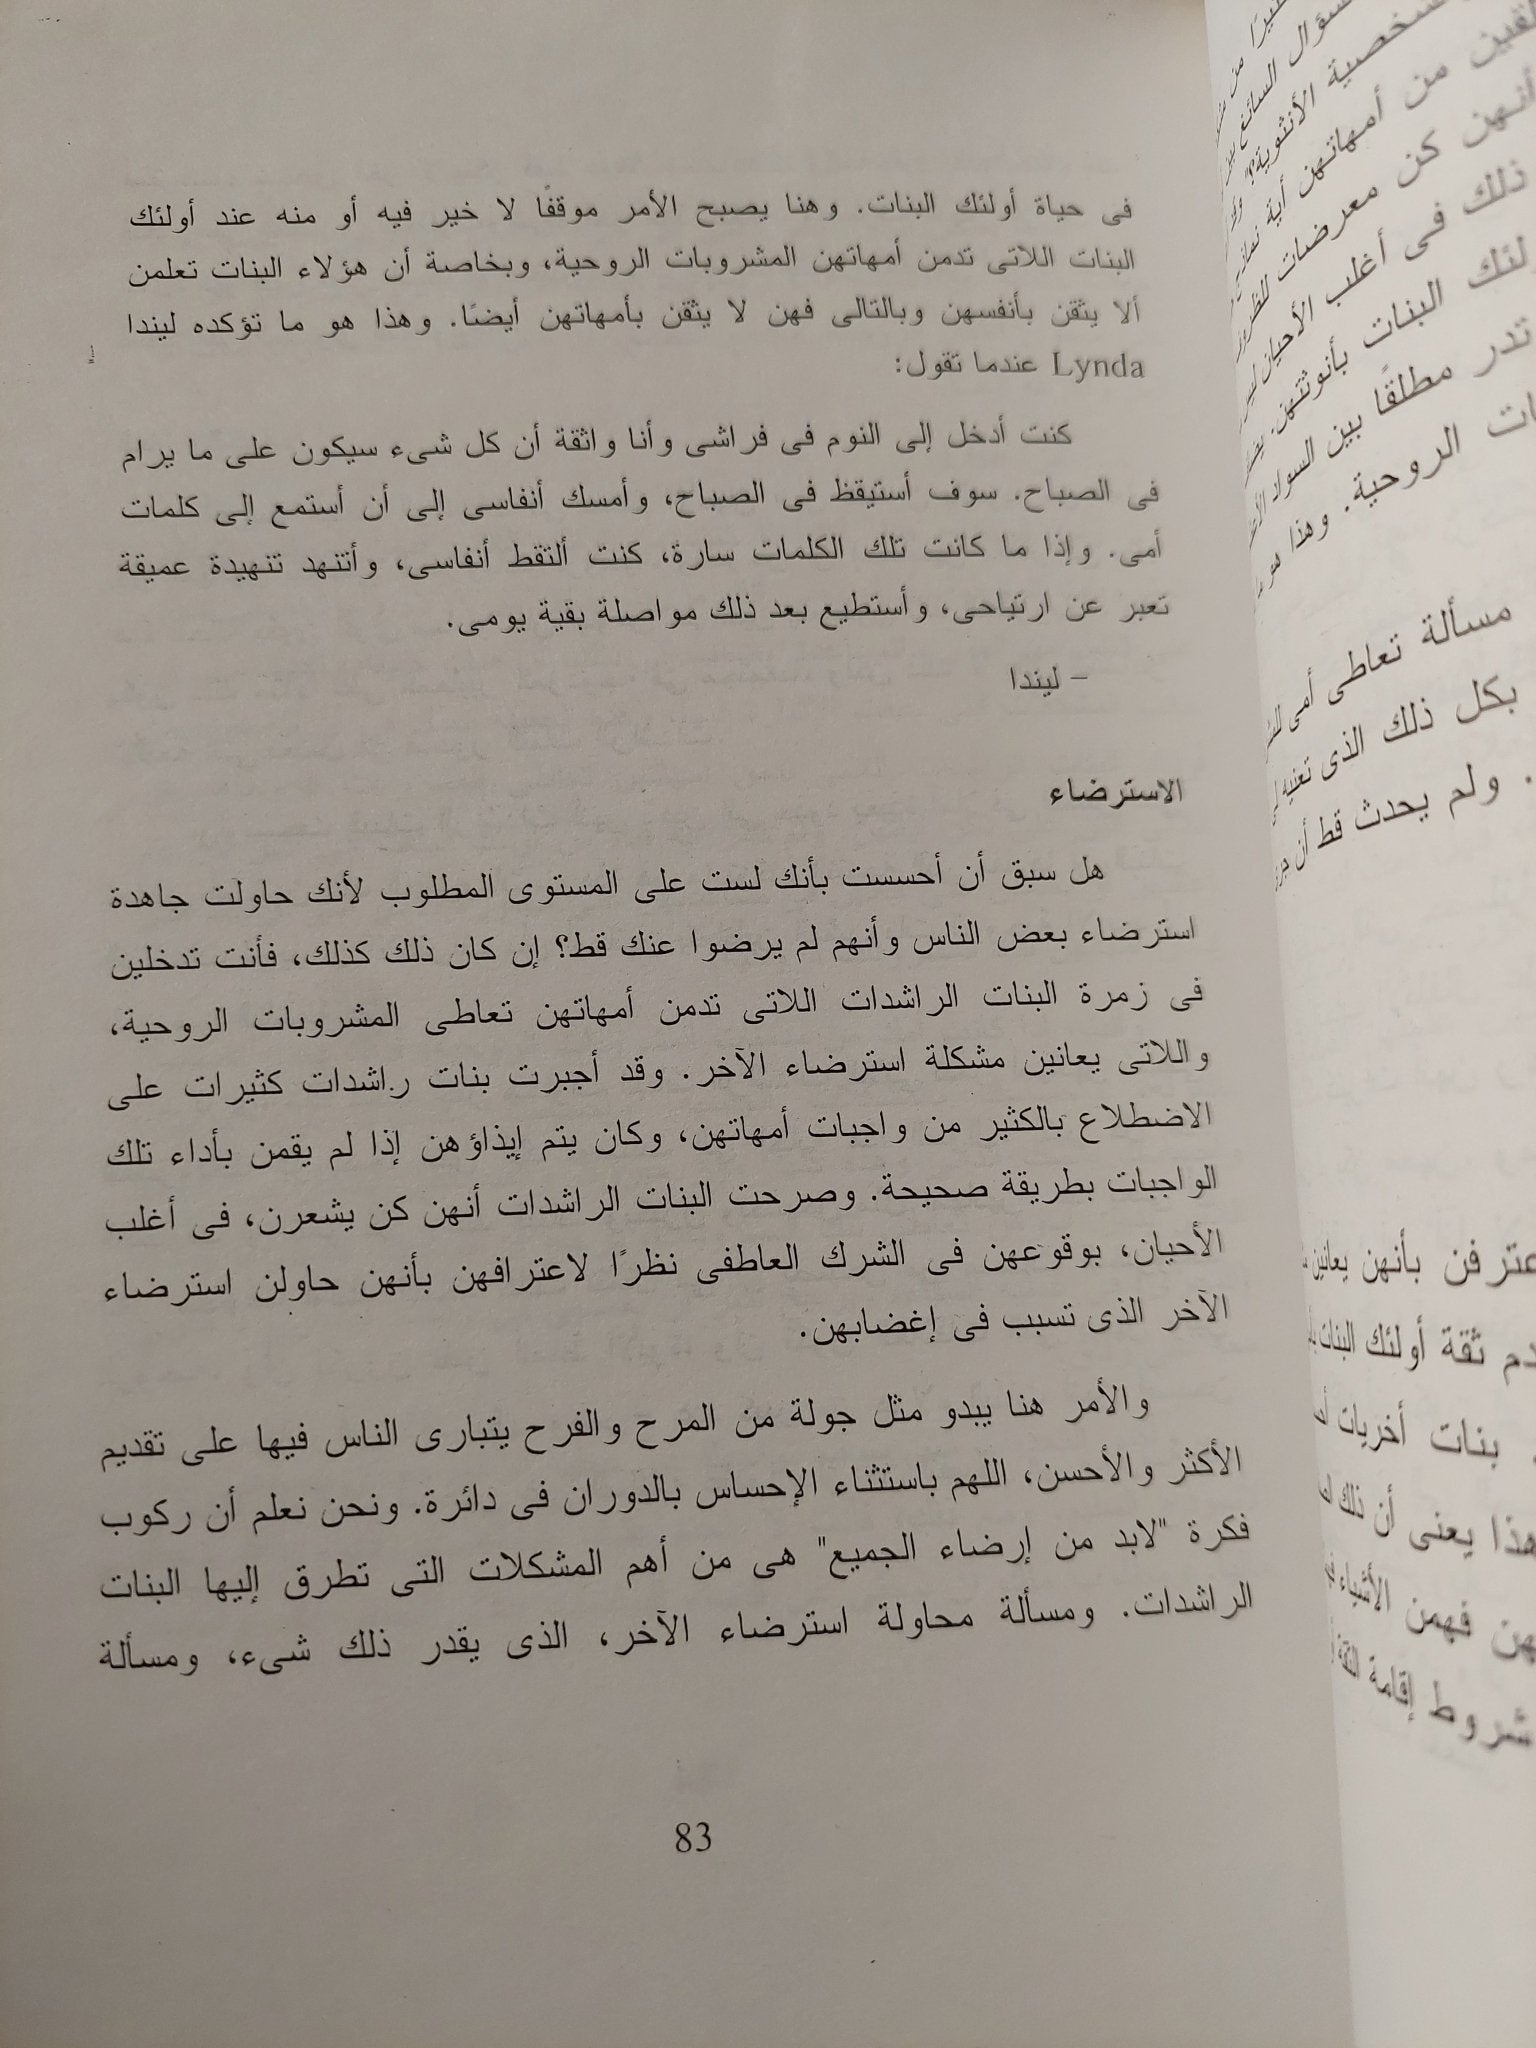 فى حياة أولئك البنات. وهنا يصبح الأمر موقفًا لا خير فيه أو منه عند أولئك
البنات اللاتى تدمن أمهاتهن المشروبات الروحية، وبخاصة أن هؤلاء البنات تعلمن
ألا يثقن بأنفسهن وبالتالى فهن لا يثقن بأمهاتهن أيضًا. وهذا هو ما تؤكده ليندا
Lynda عندما تقول:
كنت أدخل إلى النوم فى فراشى وأنا واثقة أن كل شىء سيكون على ما يرام
فى الصباح. سوف أستيقظ فى الصباح، وأمسك أنفاسى إلى أن أستمع إلى كلمات
أمى. وإذا ما كانت تلك الكلمات سارة، كنت ألتقط أنفاسى، وأتنهد تنهيدة عميقة
تعبر عن ارتياحى، وأستطيع بعد ذلك مواصلة بقية يومى.
– ليندا
الاسترضاء
هل سبق أن أحسست بأنك لست على المستوى المطلوب لأنك حاولت جاهدة
استرضاء بعض الناس وأنهم لم يرضوا عنك قط؟ إن كان ذلك كذلك، فأنت تدخلين
فى زمرة البنات الراشدات اللاتى تدمن أمهاتهن تعاطى المشروبات الروحية،
واللاتى يعانين مشكلة استرضاء الآخر. وقد أجبرت بنات راشدات كثيرات على
الاضطلاع بالكثير من واجبات أمهاتهن، وكان يتم إيذاؤهن إذا لم يقمن بأداء تلك
الواجبات بطريقة صحيحة. وصرحت البنات الراشدات أنهن كن يشعرن، فى أغلب
الأحيان، بوقوعهن فى الشرك العاطفى نظرًا لاعترافهن بأنهن حاولن استرضاء
الآخر الذى تسبب فى إغضابهن.
والأمر هنا يبدو مثل جولة من المرح والفرح يتبارى الناس فيها على تقديم
الأكثر والأحسن، اللهم باستثناء الإحساس بالدوران فى دائرة. ونحن نعلم أن ركوب
فكرة "لابد من إرضاء الجميع" هى من أهم المشكلات التى تطرق إليها البنات
الراشدات. ومسألة محاولة استرضاء الآخر، الذى يقدر ذلك شىء، ومسألة
83
السؤال السائغ
شخصية الأنثوية؟
من أمهاتهن أية
أنهن كن معرضات
ذلك فى أغلب الأحيان
البنات بأنوثتهن.
تدر مطلقًا بين السواد
الروحية. وهذا هو
مسألة تعاطى أمى
بكل ذلك الذى تعنيه
. ولم يحدث قط أن
بأنهن يعانين
ثقة أولئك البنات
بنات أخريات
هذا يعنى أن ذلك
فهمن الأشياء
شروط إقامة الثقة